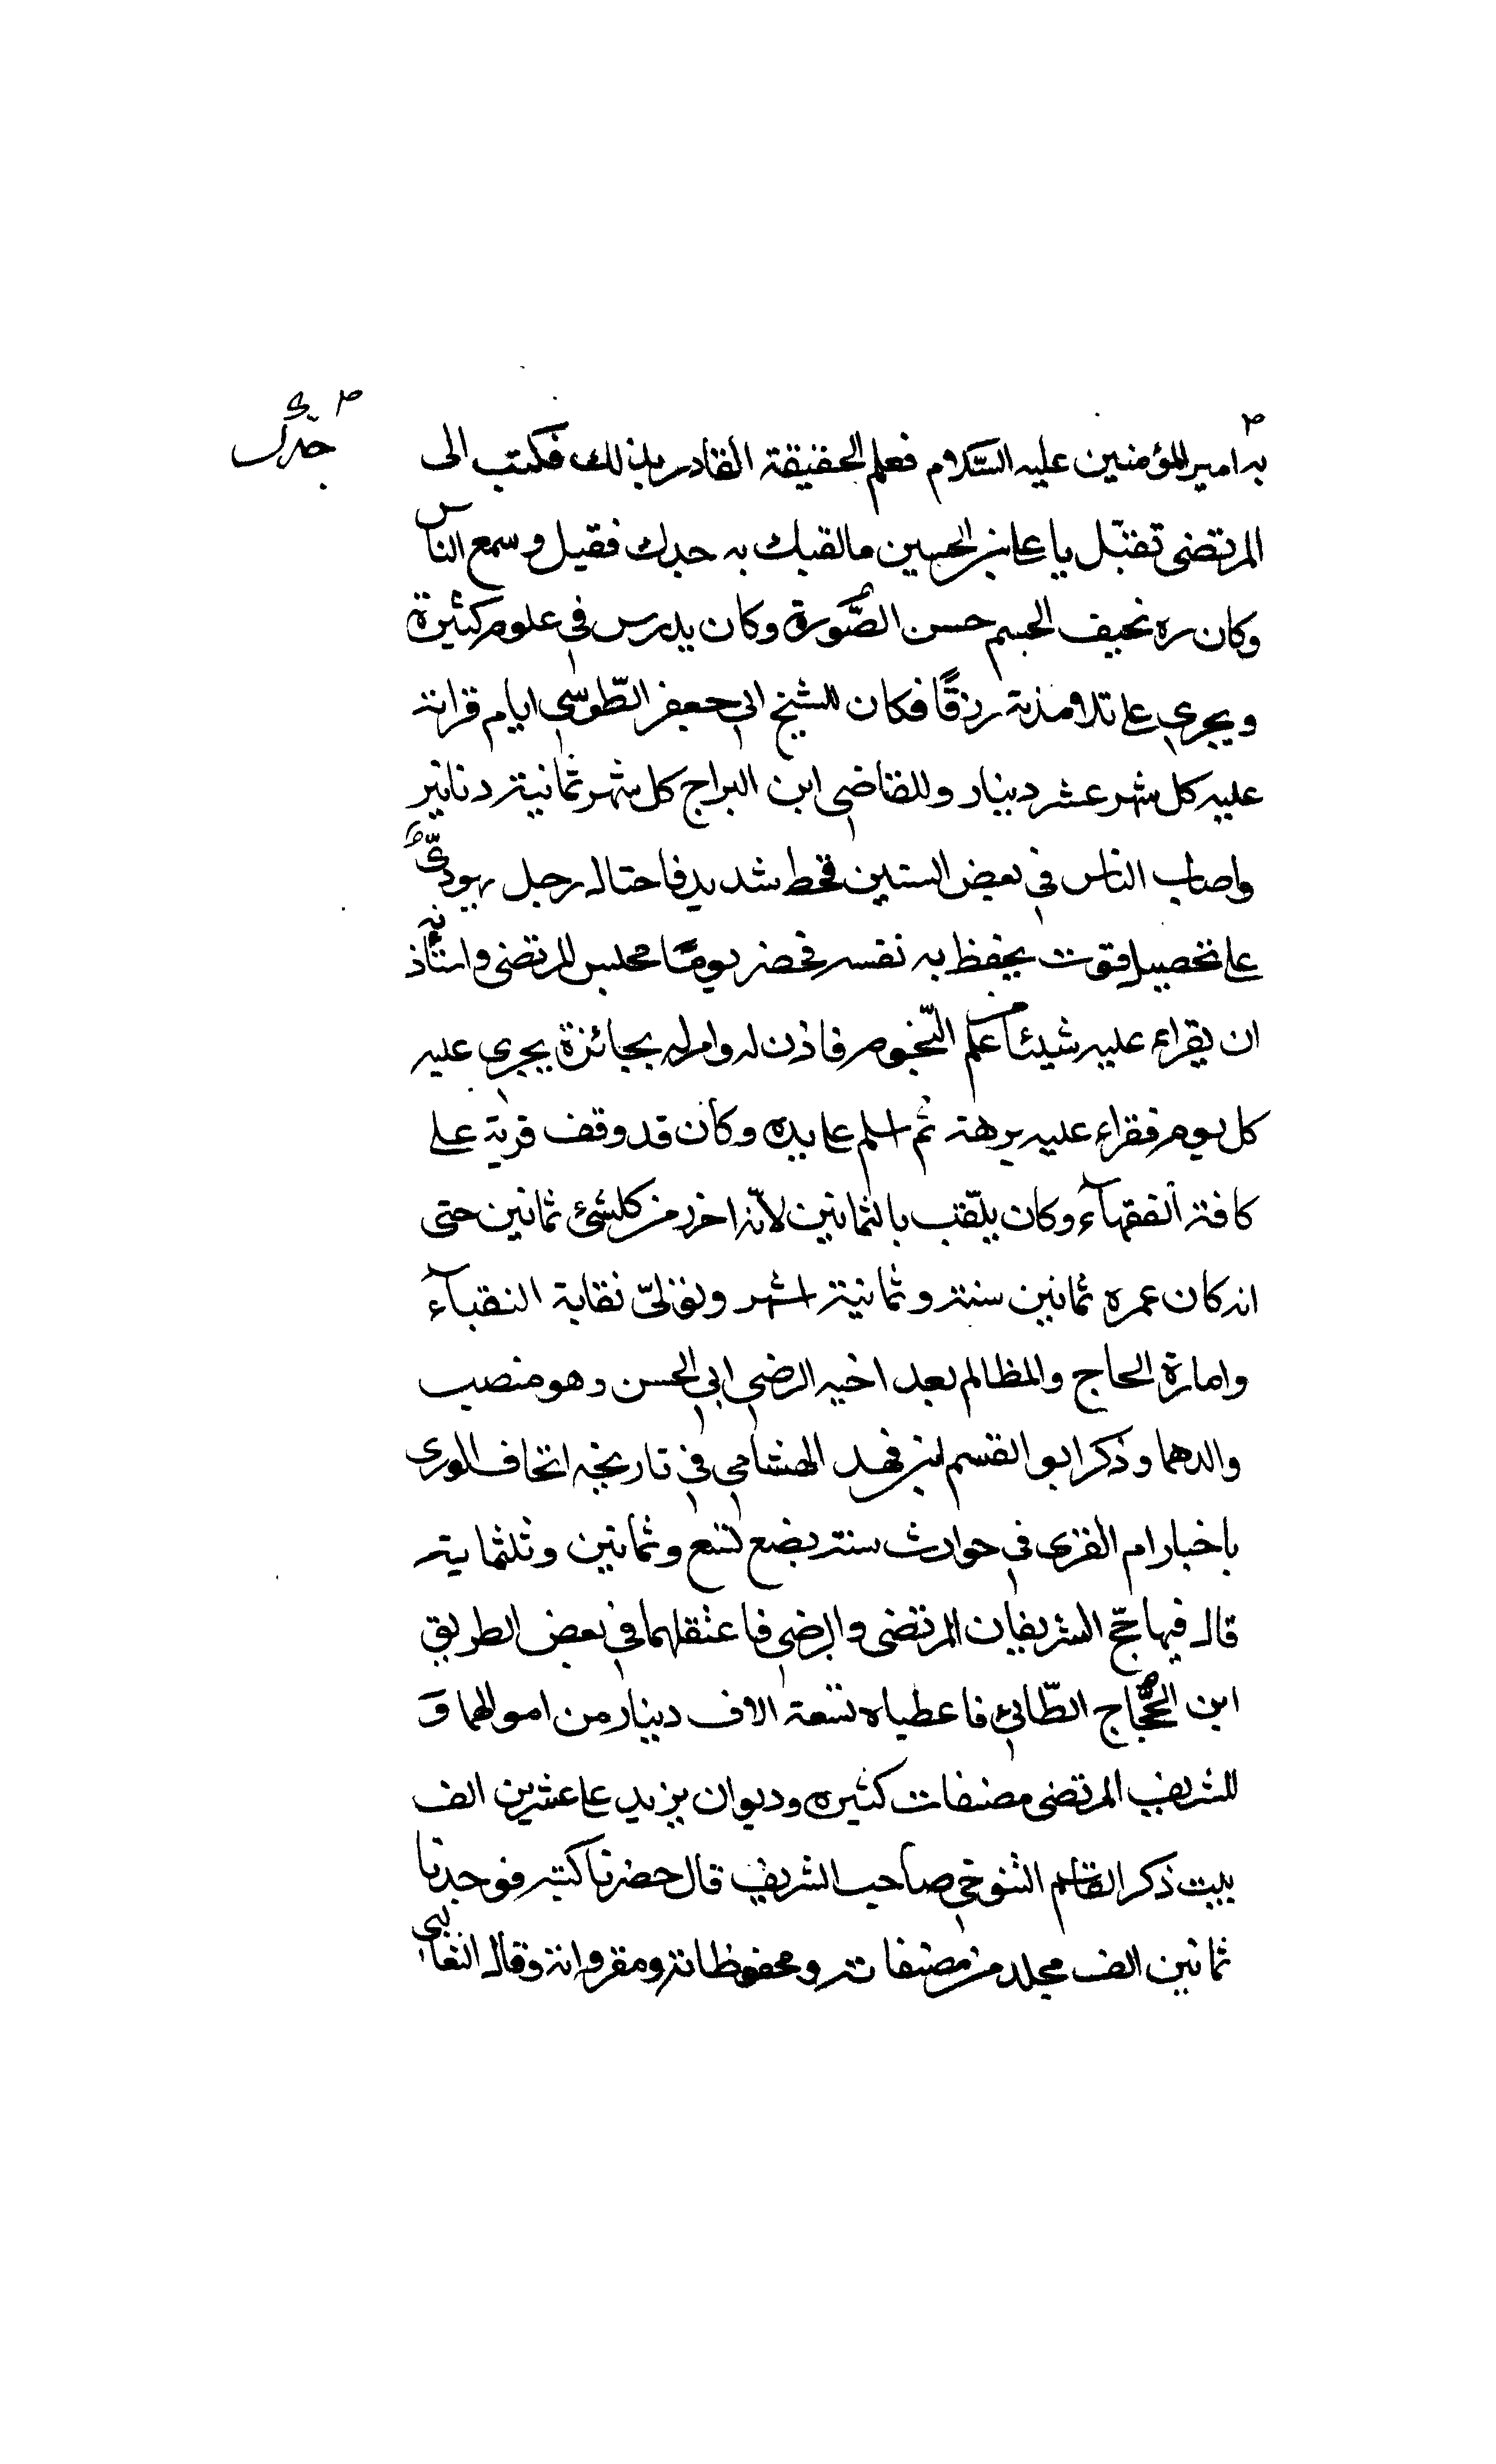 جدك
به امير المؤمنين عليه السّلام فعلم الحقيقة القادر بذلك فكتب الى
المرتضى تقبّل يا على بن الحسين ما لقبك به جدك فقيل وسمع الناس
وكان ره نحيف الجسم حسن الصُّورة وكان يدرس في علوم كثيرة
ويجرى على تلامذته رزقًا فكان للشيخ ابى جعفر الطّوسّى ايام قرائة
عليه كل شهر عشر دينار وللقاضى ابن البراج كل شهر ثمانية دنانير
واصاب الناس في بعض السنين قحط شديد فاحتال رجل يهودىّ
على تحصيل قوت يحفظ به نفسه فحضر يومًا مجلس المرتضى واستأذنه
ان يقراء عليه شيئا من علم النّجوم فاذن له وامر له بجائزة يجرى عليه
كل يوم فقراء عليه برهة ثم اسلم على يده وكان قد وقف قرية على
كافة الفقهآء وكان يلقّب بالثمانين لانّه احرز من كلشئ ثمانين حتى
انه كان عمره ثمانين سنة وثمانية اشهر وتولىّ نقابة النقبآء
وامارة الحاج والمظالم بعد اخيه الرضى ابى الحسن وهو منصب
والدهما وذكر ابو القسم بن فهد الهشامى في تاريخه اتحاف الورى
باخبار ام القرى في حوادث سنة بضع تسع وثمانين وثلثماية
قال فيها حجّ الشريفان المرتضى والرضى فاعتقلهما في بعض الطريق
ابن الحجّاج الطّائى فاعطياه تسعة الاف دينار من اموالهما وَ
للشريف المرتضى مصنفات كثيره وديوان يزيد على عشرين الف
بيت ذكر القاسم التنوخى صاحب الشريف قال حضرنا كتبه فوجدنا
ثمانين الف مجلد من مصنفاته ومحفوظاته ومقرواته وقال الثعالبى